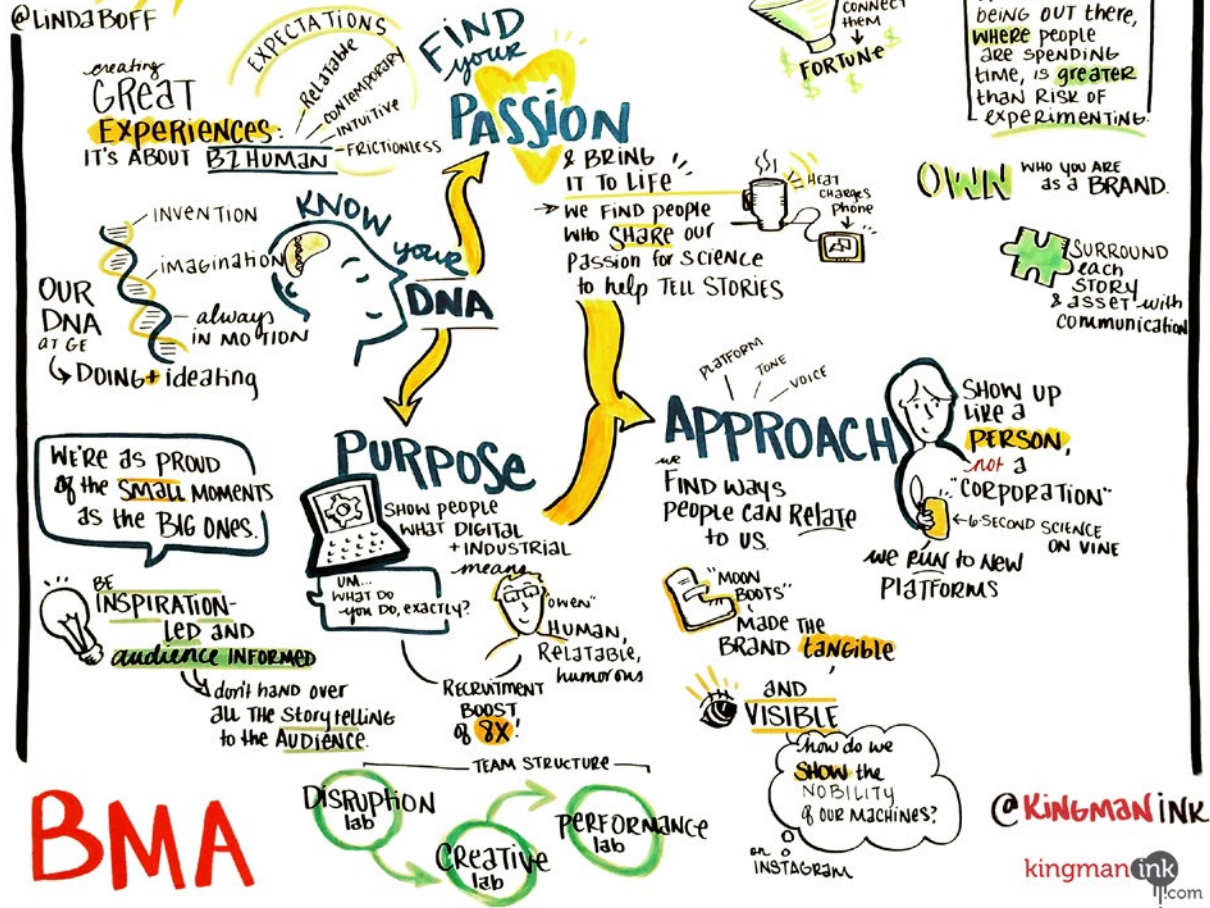 @LINDABOFF
creating
GREAT
EXPERIENCES:
IT'S ABOUT B2HUMAN
EXPECTATIONS
RELATABLE
CONTEMPORARY
INTUITIVE
FRICTIONLESS
FIND
your
PASSION
& BRING
IT TO LIFE
WE FIND PEOPLE
WHO SHARE OUR
PASSION FOR SCIENCE
to help TELL STORIES
HEAT
CHARGES
PHONE
CONNECT
them
FORTUNE
BEING OUT there,
WHERE people
ARE SPENDING
time, is greater
than RISK OF
experimenting.
OWN WHO YOU ARE
as a BRAND.
SURROUND
each
STORY
& asset with
communication
KNOW
your
DNA
INVENTION
imagination
always
IN MOTION
OUR
DNA
AT GE
DOING + ideating
WE'RE as PROUD
of the SMALL MOMENTS
as the BIG ONES.
BE
INSPIRATION-
LED AND
audience INFORMED
don't HAND OVER
all THE Storytelling
to the AUDIENCE.
PURPOSE
SHOW PEOPLE
WHAT DIGITAL
+ INDUSTRIAL
means
UM...
WHAT DO
you DO, EXACTLY?
"OWEN"
HUMAN,
RELATABLE,
humorous
RECRUITMENT
BOOST
of 8X!
PLATFORM
TONE
VOICE
APPROACH
we
FIND WAYS
PEOPLE CAN RELATE
TO US.
SHOW UP
LIKE a
PERSON,
not a
"CORPORATION"
6-SECOND SCIENCE
ON VINE
WE RUN to NEW
PLATFORMS
"MOON
BOOTS"
MADE THE
BRAND tangible
AND
VISIBLE
how do we
SHOW the
NOBILITY
of OUR MACHINES?
on
INSTAGRAM
TEAM STRUCTURE
DISRUPTION
lab
CREATIVE
lab
PERFORMANCE
lab
BMA
@KINGMANINK
kingman ink
.com